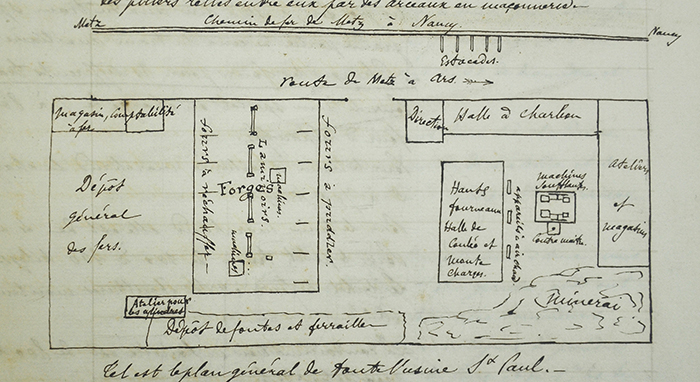 des piliers reliés entre eux par des arceaux en maçonnerie.
Metz Chemin de fer de Metz à Nancy. Nancy
Estacades.
route de Metz à Ars.
magasin, Comptabilité
à fer
Direction
Halle à charbon
Ateliers
et
magasins
Dépôt
général
des fers.
fours à réchauffer
Forges
Laminoirs.
machines.
machines
fours à puddler.
Hauts
fourneaux
Halle de
Coulée et
monte
charges.
appareils à air chaud
machines
soufflantes.
Contre maître.
Minerai
Atelier pour
les épreuves
Dépôt de fontes et ferrailles
Tel est le plan général de toute l'usine St Paul.